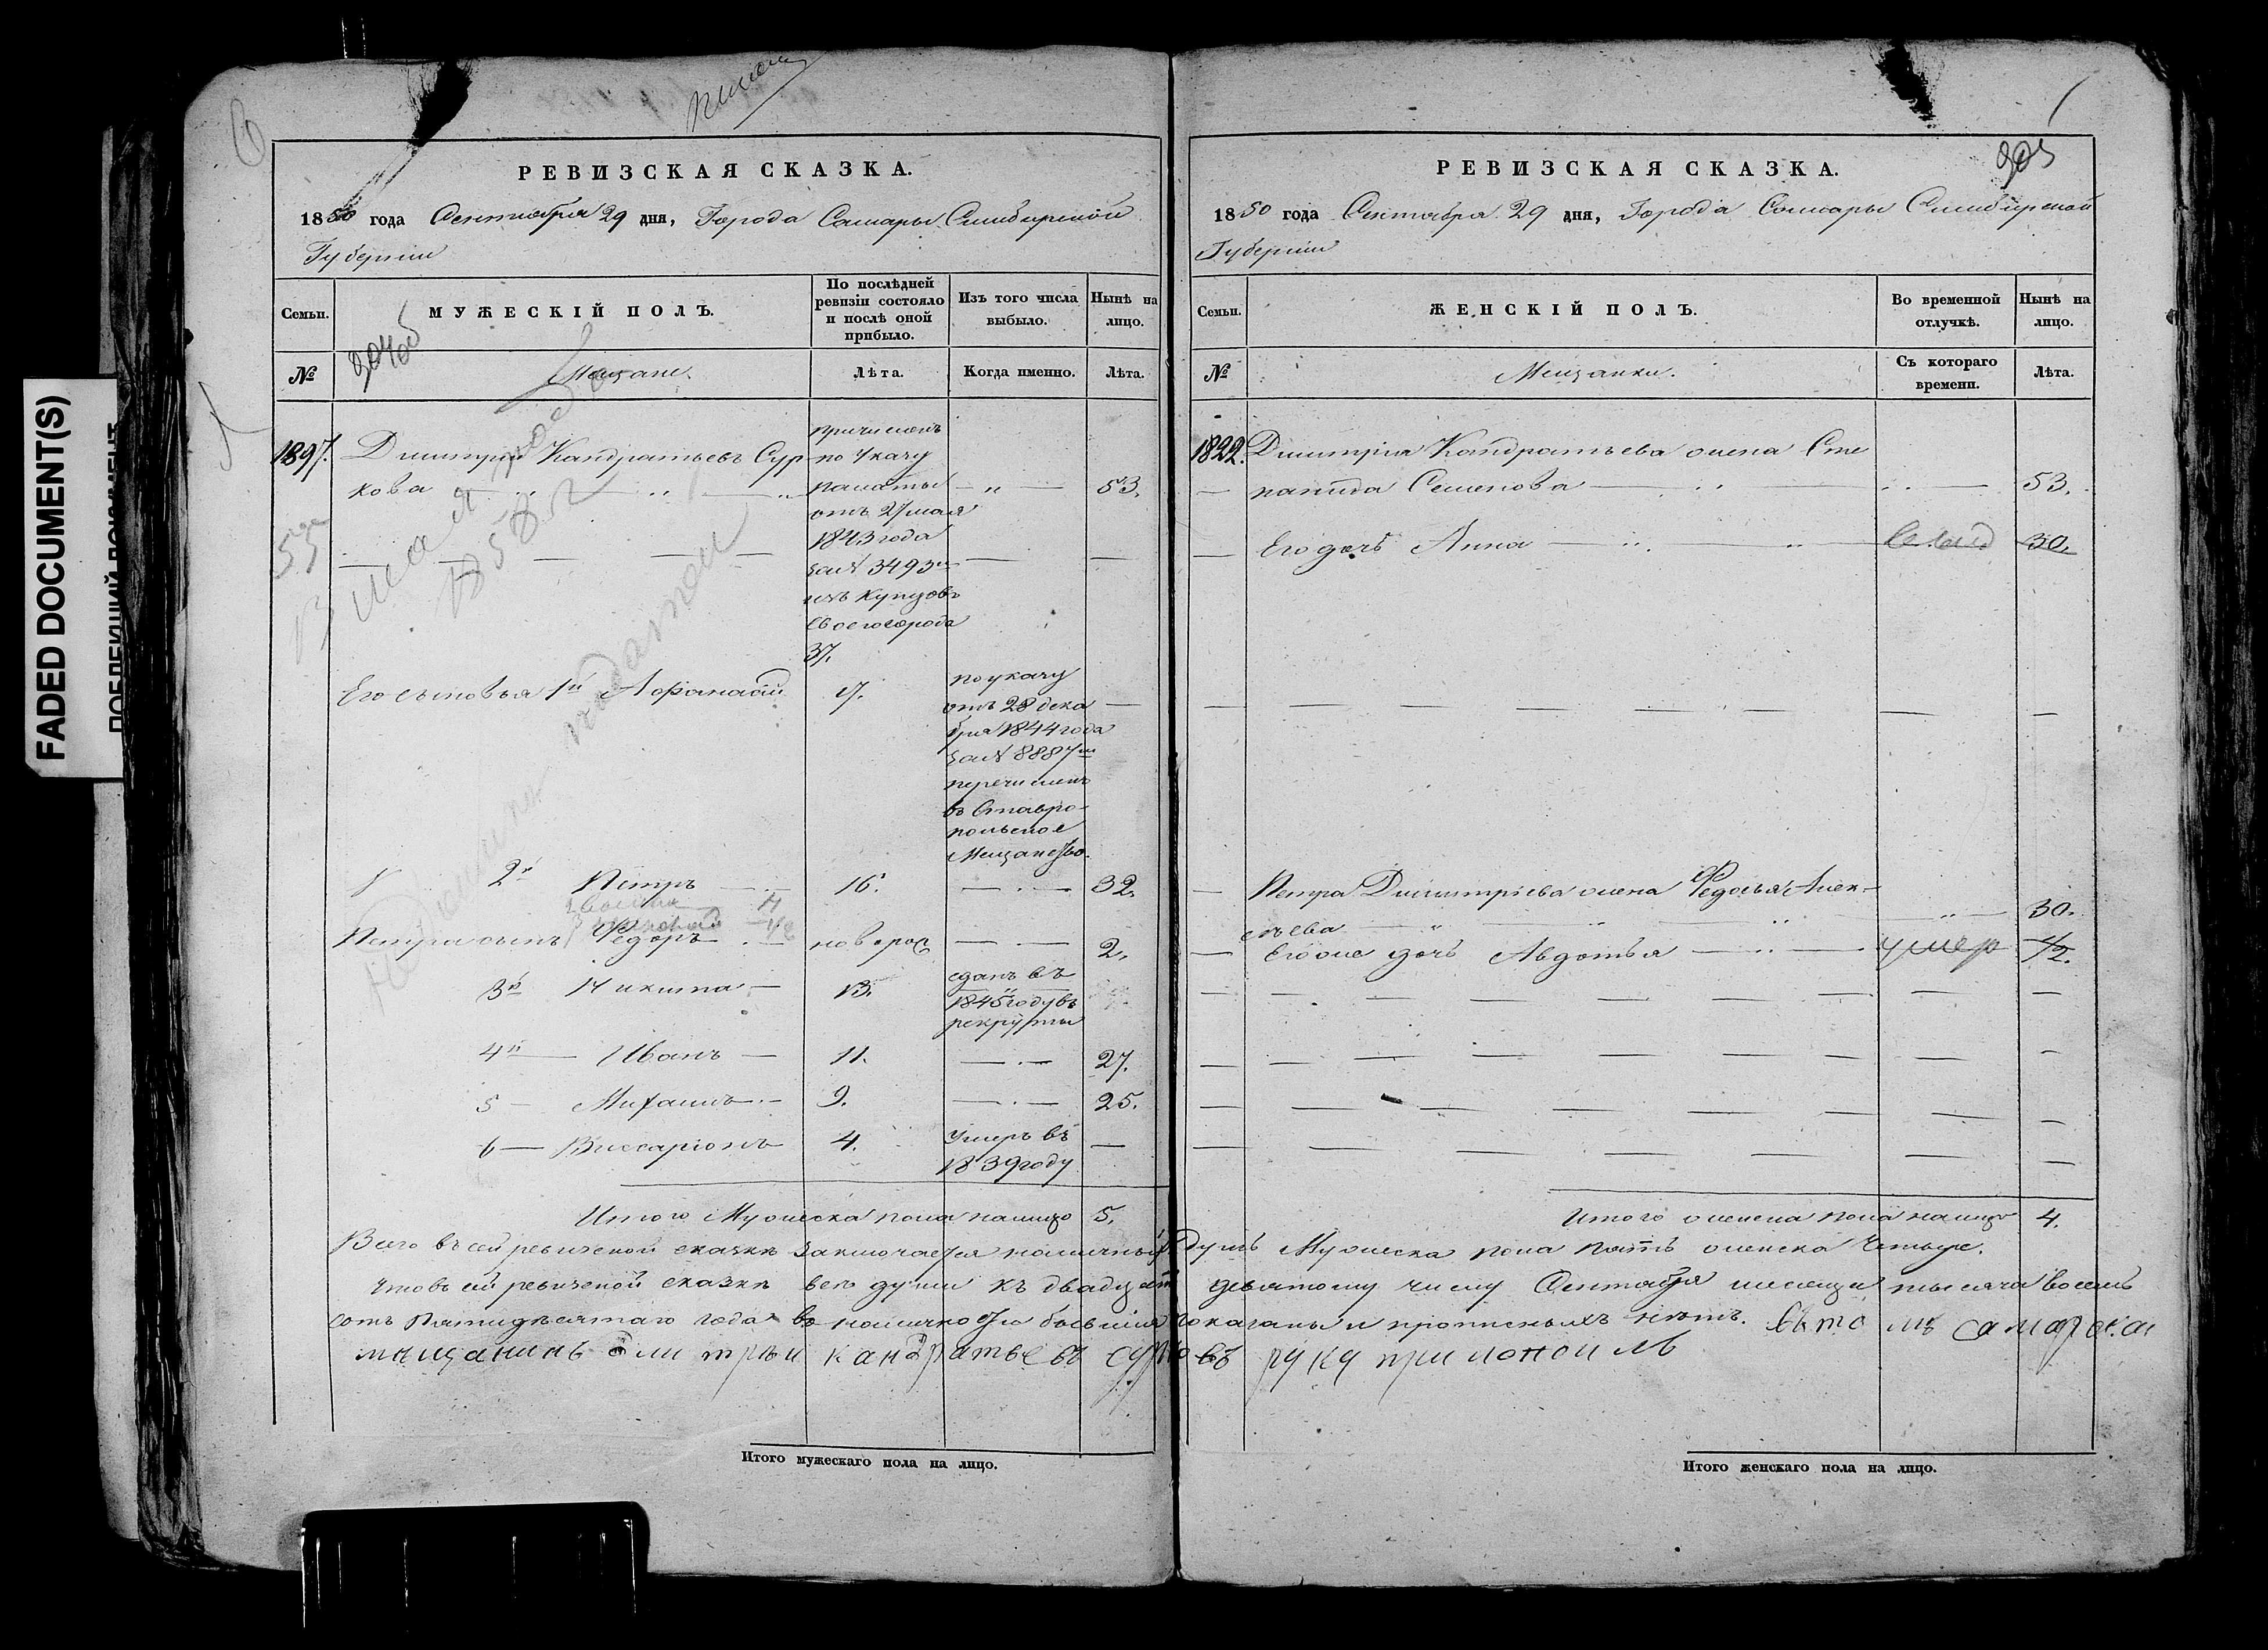 РЕВИЗСКАЯ СКАЗКА.
1850 года Сентября 29 дня, Города Самары Симбирской
Губернии
Семьи.
МУЖЕСКІЙ ПОЛЪ.
По послѣдней ревизіи состояло и послѣ оной прибыло.
Изъ того числа выбыло.
Нынѣ на лицо.
№
Мещане.
Лѣта.
Когда именно.
Лѣта.
1897. Димитрій Кандратьевъ Сур-
кова 53.
причисленъ
по Указу
палаты
отъ 27 мая
1843 года
за № 3493м
изъ купцовъ
сего города
37.
Его сыновья 1й Афонасій 17.
по указу
отъ 28 дека
бря 1844 года
за № 8887м
перечисленъ
въ Ставро-
польское
Мещанство.
2й Петръ 16. 32.
Петра сынъ Федоръ новорож 2.
3й Никита 13. сданъ въ
1845 году въ
рекруты
4й Иванъ 11. 27.
5 Михаилъ 9. 25.
6 Висаріонъ 4. умеръ въ
1839 году
Итого Мужеска пола налицо 5.
РЕВИЗСКАЯ СКАЗКА.
1850 года Сентября 29 дня, Города Самары Симбирской
Губерніи
Семьи.
ЖЕНСКІЙ ПОЛЪ.
Во временной отлучкѣ.
Нынѣ на лицо.
№
Мещанки.
Съ котораго времени.
Лѣта.
1822. Димитрія Кандратьева жена Сте
панида Семенова 53.
Его дочь Анна 30.
Петра Димитріева жена Федосья Алек-
сѣева 30.
Его же дочь Авдотья умер 1/2.
Итого женска пола налицо 4.
Всего въ сей ревизской сказкѣ заключается наличныхъ душъ Мужеска пола пять женска четыре.
Что въ сей ревизской сказкѣ всѣ души къ двадцать девятому числу Сентября месяца тысяча восемь
сотъ пятидѣсятаго года въ наличности бывшія показаны и прописныхъ нѣтъ. въ томъ самарскай
мищанинъ дмитрѣи кандратьевъ сурковъ руку приложилъ
Итого мужескаго пола на лицо.
Итого женскаго пола на лицо.
FADED DOCUMENT(S)